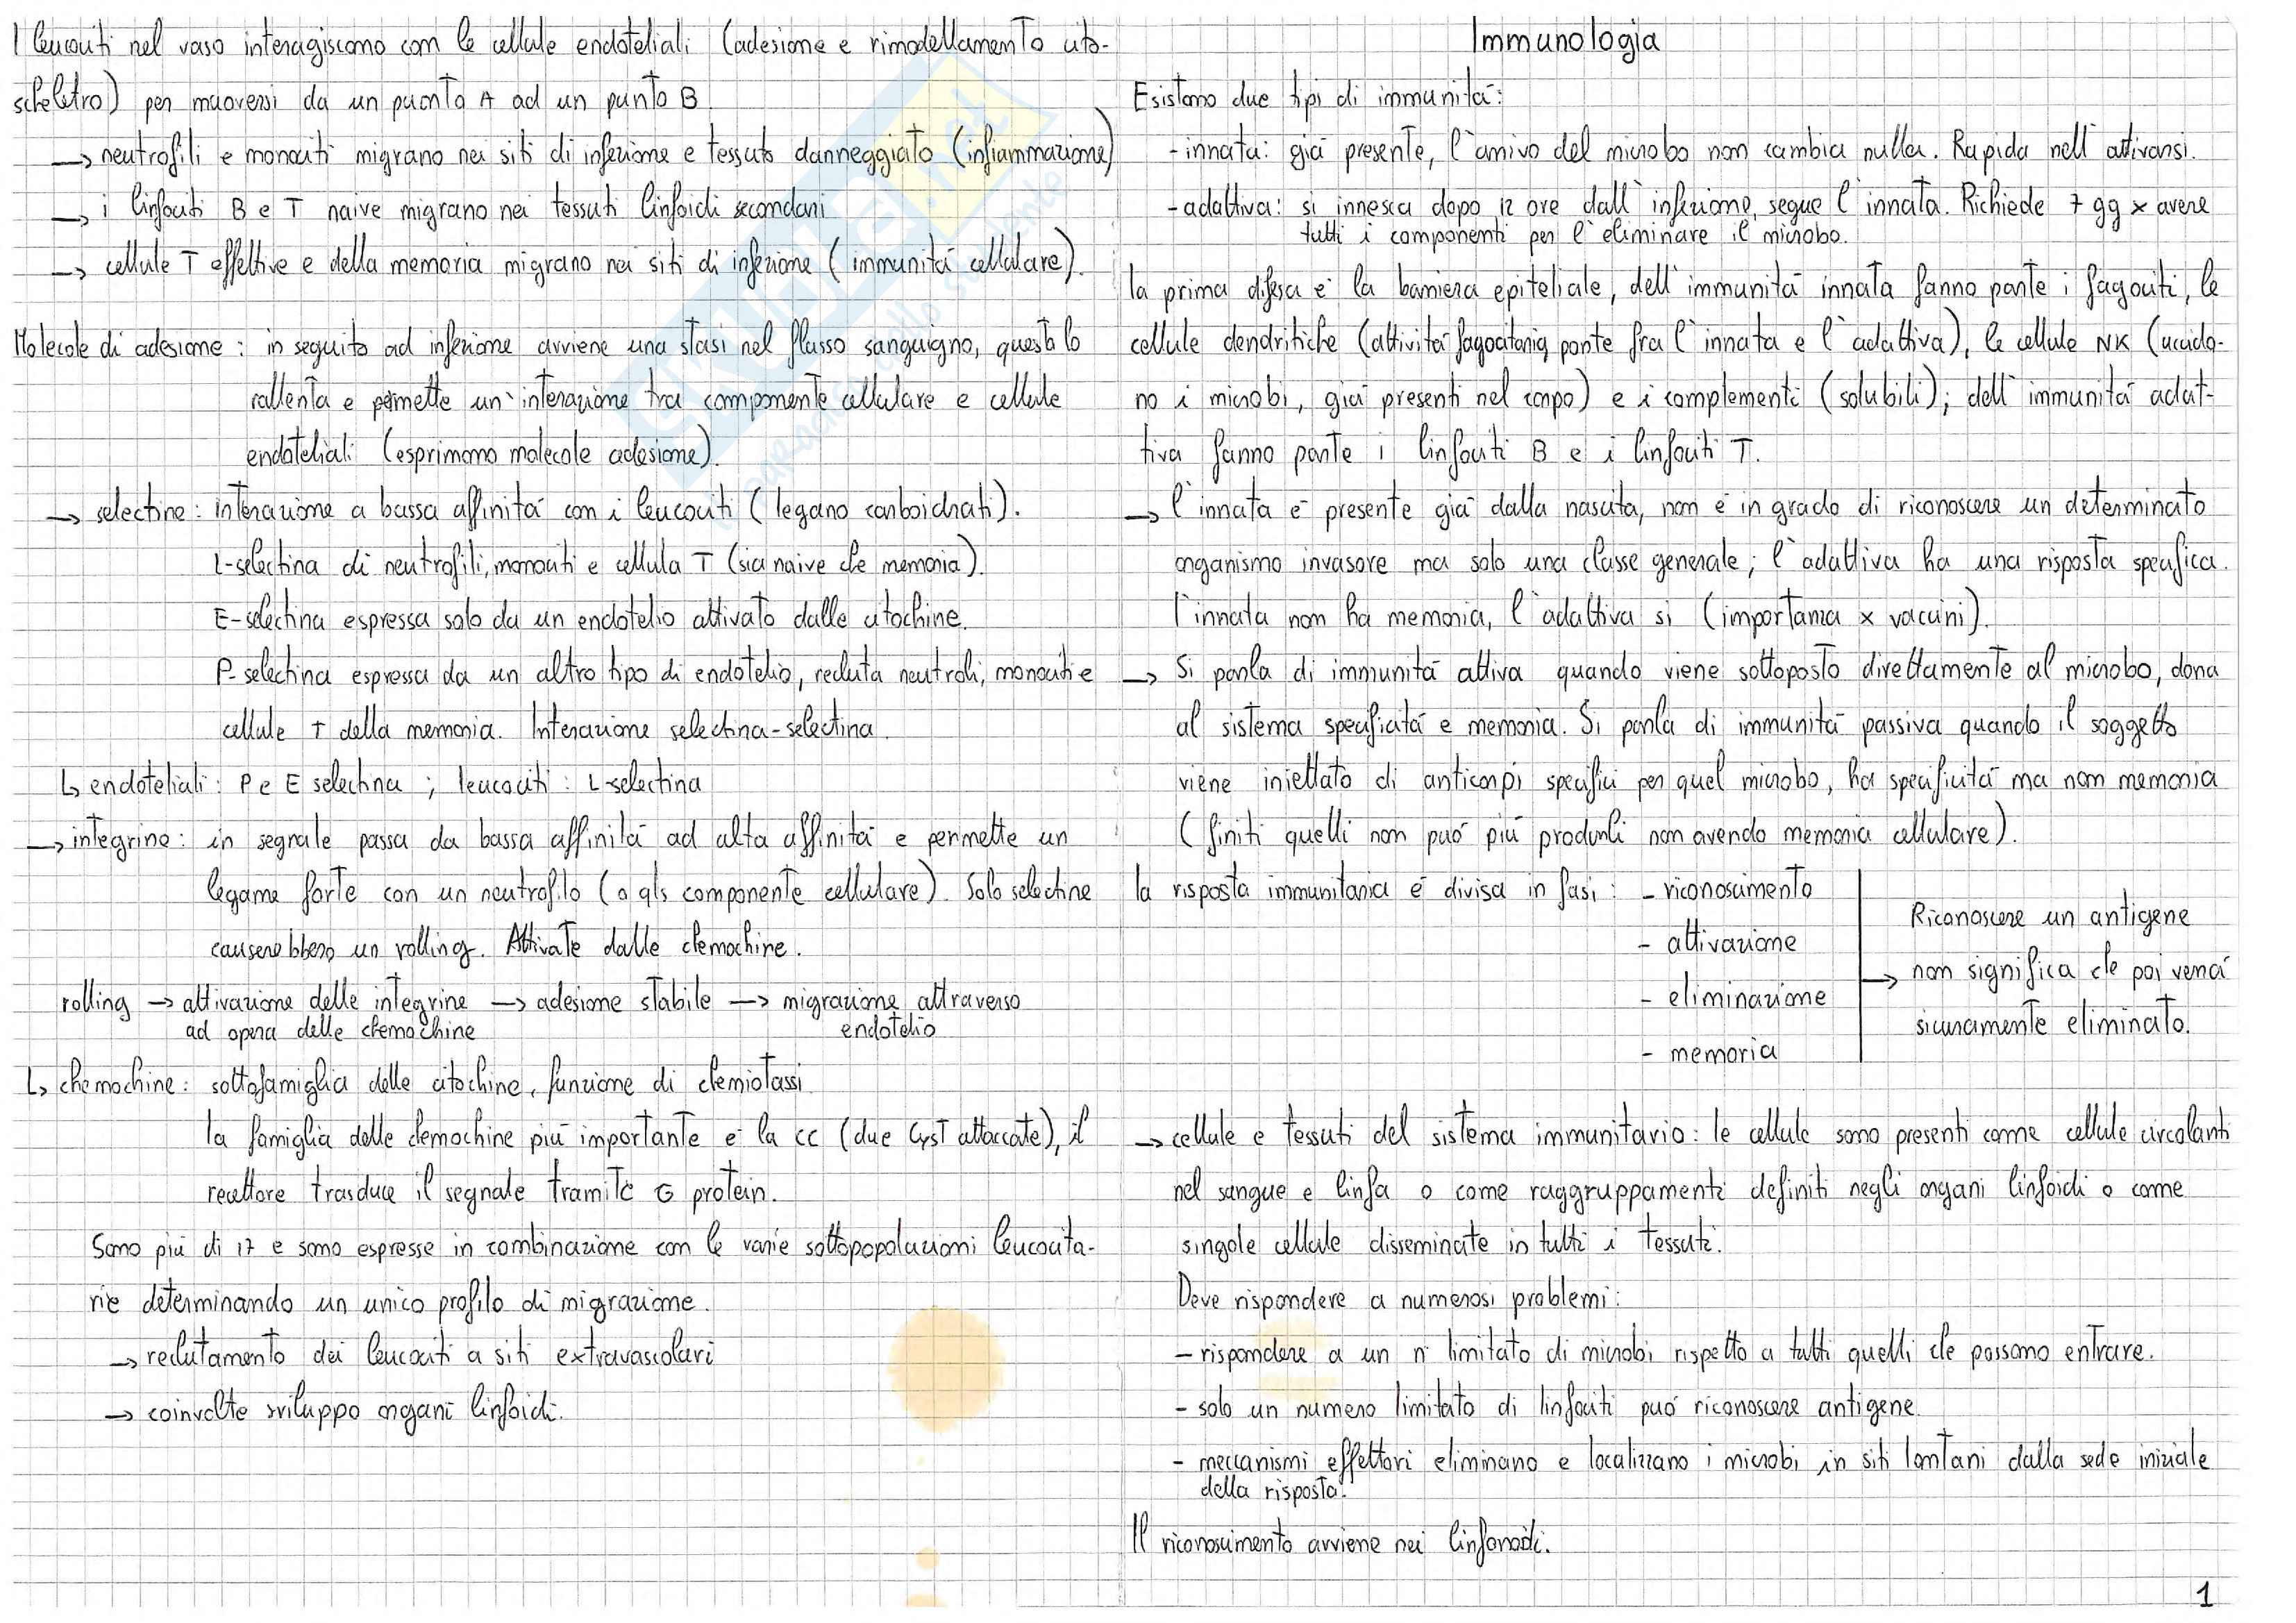 I leucociti nel vaso interagiscono con le cellule endoteliali (adesione e rimodellamento cito-
scheletro) per muoversi da un puonto A ad un punto B
→ neutrofili e monociti migrano nei siti di infezione e tessuto danneggiato (infiammazione)
→ i linfociti B e T naive migrano nei tessuti linfoidi secondari
→ cellule T effettive e della memoria migrano nei siti di infezione (immunità cellulare).
Molecole di adesione: in seguito ad infezione avviene una stasi nel flusso sanguigno, questa lo
rallenta e permette un'interazione tra componente cellulare e cellule
endoteliali (esprimono molecole adesione).
→ selectine: interazione a bassa affinità con i leucociti (legano carboidrati).
L-selectina di neutrofili, monociti e cellula T (sia naive che memoria).
E-selectina espressa solo da un endotelio attivato dalle citochine.
P-selectina espressa da un altro tipo di endotelio, recluta neutrofili, monociti e
cellule T della memoria. Interazione selectina-selectina.
↳ endoteliali: P e E selectina ; leucociti: L-selectina
→ integrine: in segnale passa da bassa affinità ad alta affinità e permette un
legame forte con un neutrofilo (o qls componente cellulare). Solo selectine
causerebbero un rolling. Attivate dalle chemochine.
rolling → attivazione delle integrine → adesione stabile → migrazione attraverso
ad opera delle chemochine endotelio
↳ chemochine: sottofamiglia delle citochine, funzione di chemiotassi
la famiglia delle chemochine più importante è la CC (due CysT attaccate), il
recettore trasduce il segnale tramite G protein.
Sono più di 17 e sono espresse in combinazione con le varie sottopopolazioni leucocita-
rie determinando un unico profilo di migrazione.
→ reclutamento dei leucociti a siti extravascolari
→ coinvolte sviluppo organi linfoidi.
Immunologia
Esistono due tipi di immunità:
- innata: già presente, l'arrivo del microbo non cambia nulla. Rapida nell'attivarsi.
- adattiva: si innesca dopo 12 ore dall'infezione, segue l'innata. Richiede 7 gg x avere
tutti i componenti per l'eliminare il microbo.
la prima difesa è la barriera epiteliale, dell'immunità innata fanno parte i fagociti, le
cellule dendritiche (attività fagocitaria, ponte fra l'innata e l'adattiva), le cellule NK (uccido-
no i microbi, già presenti nel corpo) e i complementi (solubili); dell'immunità adat-
tiva fanno parte i linfociti B e i linfociti T.
→ l'innata è presente già dalla nascita, non è in grado di riconoscere un determinato
organismo invasore ma solo una classe generale; l'adattiva ha una risposta specifica.
l'innata non ha memoria, l'adattiva si (importanza x vaccini).
→ Si parla di immunità attiva quando viene sottoposto direttamente al microbo, dona
al sistema specificità e memoria. Si parla di immunità passiva quando il soggetto
viene iniettato di anticorpi specifici per quel microbo, ha specificità ma non memoria
(finiti quelli non può più produrli non avendo memoria cellulare).
la risposta immunitaria è divisa in fasi: - riconoscimento
- attivazione
- eliminazione
- memoria
Riconoscere un antigene
→ non significa che poi verrà
sicuramente eliminato.
→ cellule e tessuti del sistema immunitario: le cellule sono presenti come cellule circolanti
nel sangue e linfa o come raggruppamenti definiti negli organi linfoidi o come
singole cellule disseminate in tutti i tessuti.
Deve rispondere a numerosi problemi:
- rispondere a un n° limitato di microbi rispetto a tutti quelli che possono entrare.
- solo un numero limitato di linfociti può riconoscere antigene.
- meccanismi effettori eliminano e localizzano i microbi in siti lontani dalla sede iniziale
della risposta.
Il riconoscimento avviene nei linfonodi.
1